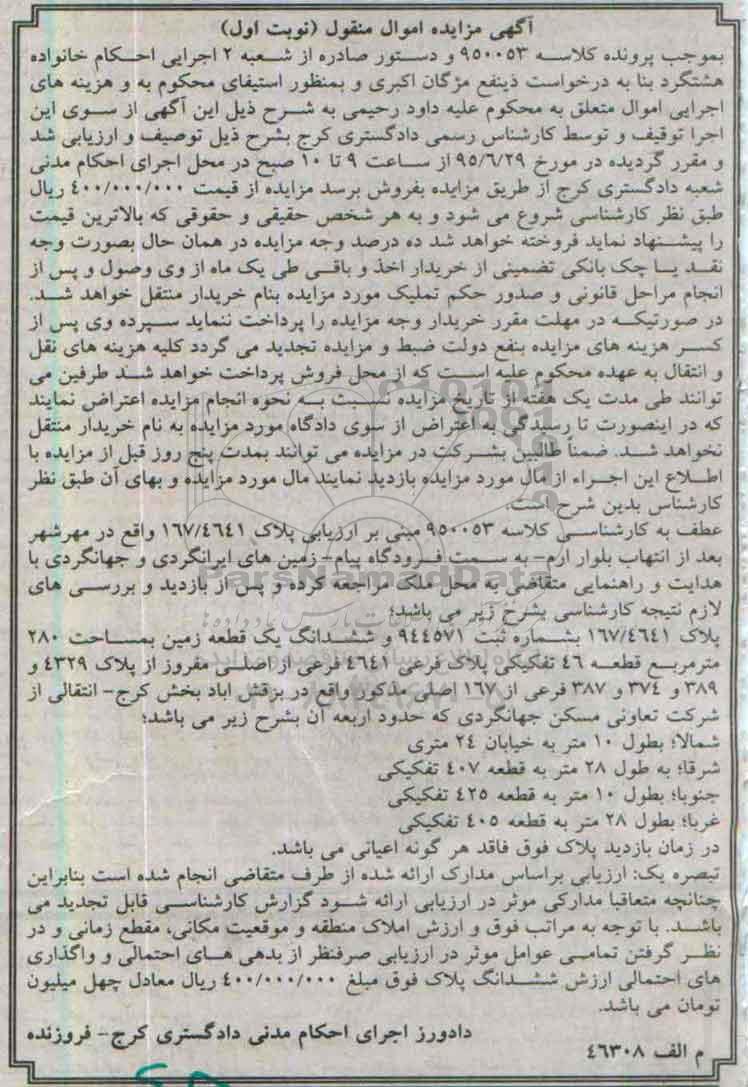 آگهی مزایده اموال منقول (نوبت اول)
بموجب پرونده کلاسه ۹۵۰۰۵۳ و دستور صادره از شعبه ۲ اجرایی احکام خانواده
هشتگرد بنا به درخواست ذینفع مژگان اکبری و بمنظور استیفای محکوم به و هزینه های
اجرایی اموال متعلق به محکوم علیه داود رحیمی به شرح ذیل این آگهی از سوی این
اجرا توقیف و توسط کارشناس رسمی دادگستری کرج بشرح ذیل توصیف و ارزیابی شد
و مقرر گردیده در مورخ ۹۵/٦/۲۹ از ساعت ۹ تا ۱۰ صبح در محل اجرای احکام مدنی
شعبه دادگستری کرج از طریق مزایده بفروش برسد مزایده از قیمت ٤۰۰/۰۰۰/۰۰۰ ریال
طبق نظر کارشناسی شروع می شود و به هر شخص حقیقی و حقوقی که بالاترین قیمت
را پیشنهاد نماید فروخته خواهد شد ده درصد وجه مزایده در همان حال بصورت وجه
نقد یا چک بانکی تضمینی از خریدار اخذ و باقی طی یک ماه از وی وصول و پس از
انجام مراحل قانونی و صدور حکم تملیک مورد مزایده بنام خریدار منتقل خواهد شد.
در صورتیکه در مهلت مقرر خریدار وجه مزایده را پرداخت ننماید سپرده وی پس از
کسر هزینه های مزایده بنفع دولت ضبط و مزایده تجدید می گردد کلیه هزینه های نقل
و انتقال به عهده محکوم علیه است که از محل فروش پرداخت خواهد شد طرفین می
توانند طی مدت یک هفته از تاریخ مزایده نسبت به نحوه انجام مزایده اعتراض نمایند
که در اینصورت تا رسیدگی به اعتراض از سوی دادگاه مورد مزایده به نام خریدار منتقل
نخواهد شد. ضمناً طالبین بشرکت در مزایده می توانند بمدت پنج روز قبل از مزایده با
اطلاع این اجراء از مال مورد مزایده بازدید نمایند مال مورد مزایده و بهای آن طبق نظر
کارشناس بدین شرح است:
عطف به کارشناسی کلاسه ۹۵۰۰۵۳ مبنی بر ارزیابی پلاک ۱٦۷/٤٦٤۱ واقع در مهرشهر
بعد از انتهاب بلوار ارم- به سمت فرودگاه پیام- زمین های ایرانگردی و جهانگردی با
هدایت و راهنمایی متقاضی به محل ملک مراجعه کرده و پس از بازدید و بررسی های
لازم نتیجه کارشناسی بشرح زیر می باشد؛
پلاک ۱٦۷/٤٦٤۱ بشماره ثبت ۹٤٤۵۷۱ و ششدانگ یک قطعه زمین بمساحت ۲۸۰
مترمربع قطعه ٤٦ تفکیکی پلاک فرعی ٤٦٤۱ فرعی از اصلی مفروز از پلاک ٤۳۲۹ و
۳۸۹ و ۳۷٤ و ۳۸۷ فرعی از ۱٦۷ اصلی مذکور واقع در بزقش اباد بخش کرج- انتقالی از
شرکت تعاونی مسکن جهانگردی که حدود اربعه آن بشرح زیر می باشد؛
شمالا؛ بطول ۱۰ متر به خیابان ۲٤ متری
شرقا؛ به طول ۲۸ متر به قطعه ٤۰۷ تفکیکی
جنوبا؛ بطول ۱۰ متر به قطعه ٤۲۵ تفکیکی
غربا؛ بطول ۲۸ متر به قطعه ٤۰۵ تفکیکی
در زمان بازدید پلاک فوق فاقد هر گونه اعیانی می باشد.
تبصره یک: ارزیابی براساس مدارک ارائه شده از طرف متقاضی انجام شده است بنابراین
چنانچه متعاقبا مدارکی موثر در ارزیابی ارائه شود گزارش کارشناسی قابل تجدید می
باشد. با توجه به مراتب فوق و ارزش املاک منطقه و موقعیت مکانی، مقطع زمانی و در
نظر گرفتن تمامی عوامل موثر در ارزیابی صرفنظر از بدهی های احتمالی و واگذاری
های احتمالی ارزش ششدانگ پلاک فوق مبلغ ٤۰۰/۰۰۰/۰۰۰ ریال معادل چهل میلیون
تومان می باشد.
دادورز اجرای احکام مدنی دادگستری کرج- فروزنده
م الف ٤٦۳۰۸
ParsNamadData